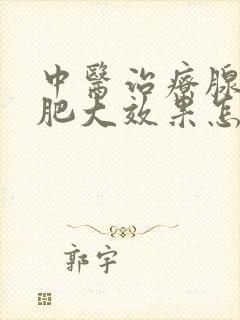 中醫治療腺
肥大效果怎
郭宇